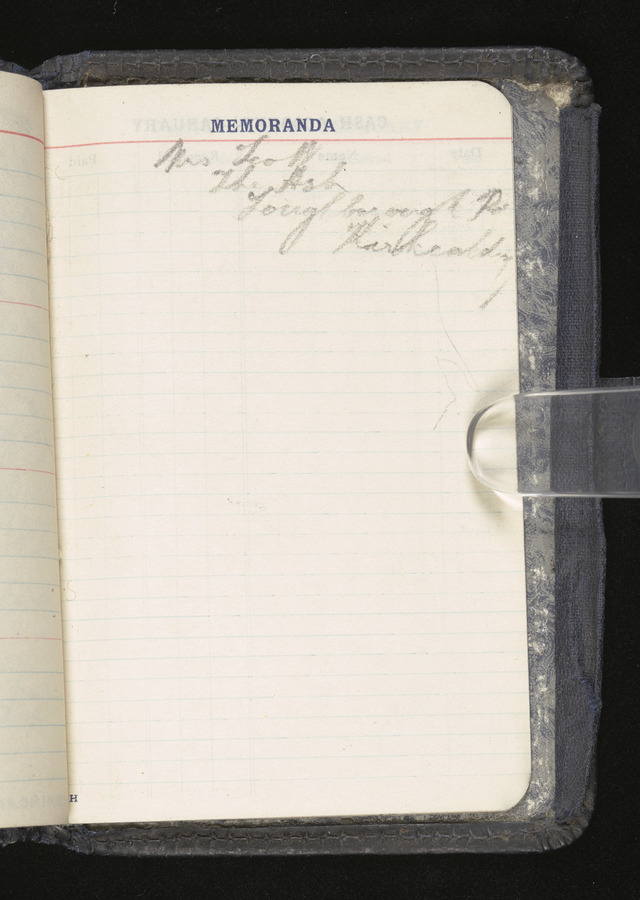 MEMORANDA
Mrs Leo W
The Ash
Loughborough Rd
Kirkcaldy
H